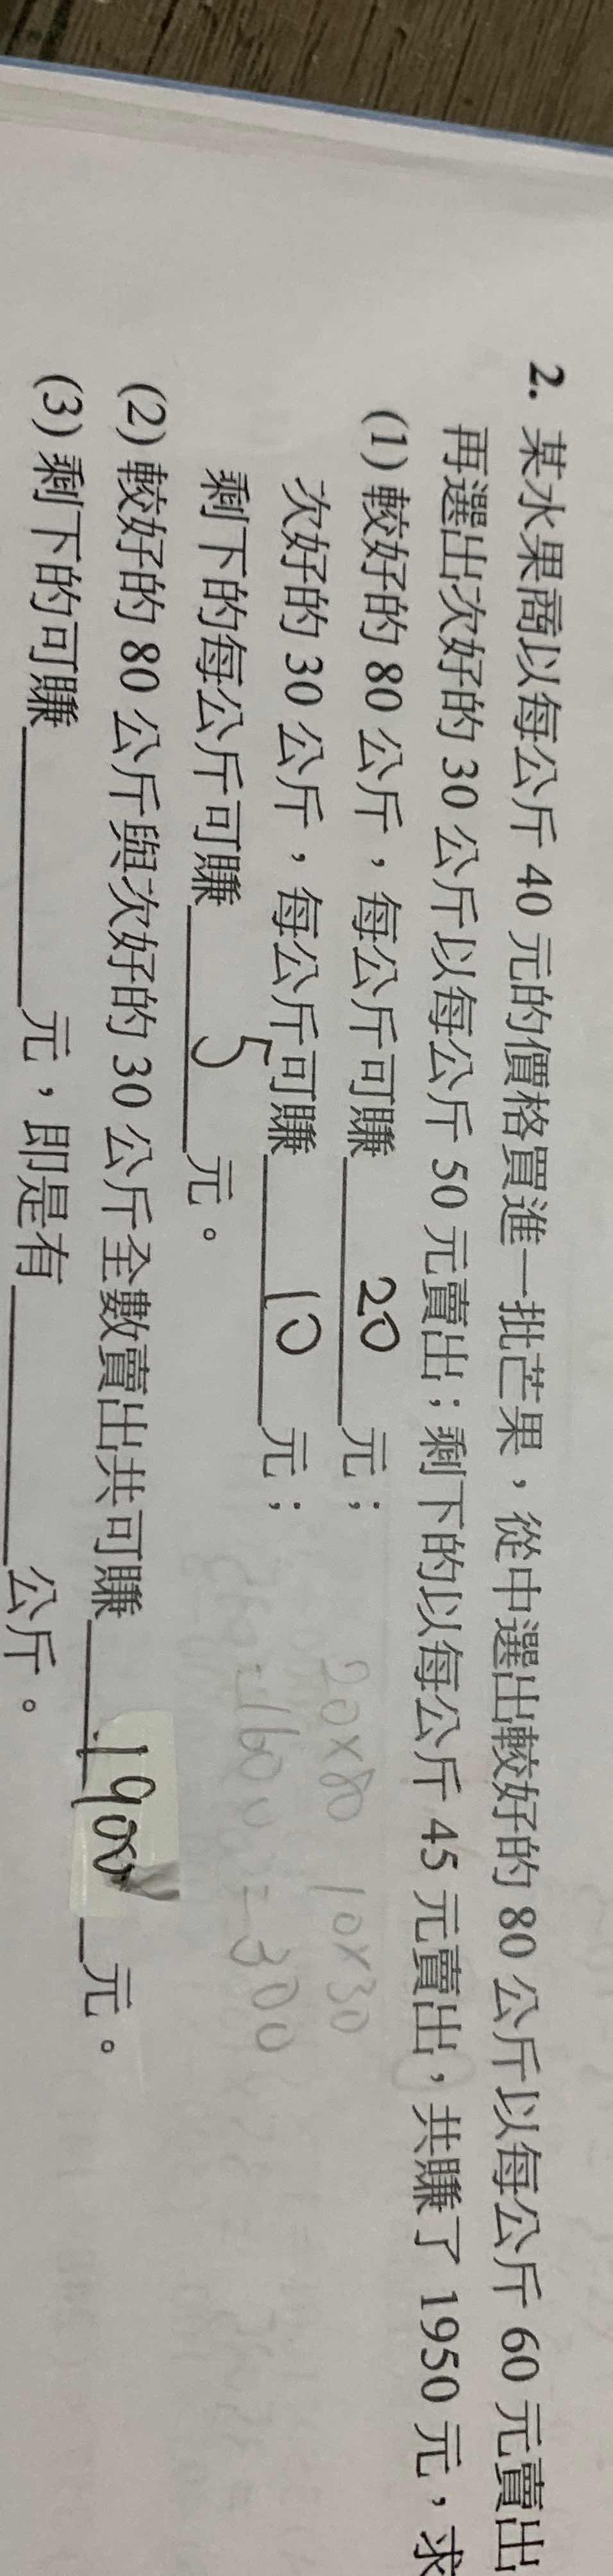 2. 某水果商以每公斤 40 元的價格買進一批芒果，從中選出較好的 80 公斤以每公斤 60 元賣出
再選出次好的 30 公斤以每公斤 50 元賣出；剩下的以每公斤 45 元賣出，共賺了 1950 元，求
(1) 較好的 80 公斤，每公斤可賺 20 元；
次好的 30 公斤，每公斤可賺 10 元；
剩下的每公斤可賺 5 元。
20×80 10×30
=1600 =300
(2) 較好的 80 公斤與次好的 30 公斤全數賣出共可賺 1900 元。
(3) 剩下的可賺 元，即是有 公斤。